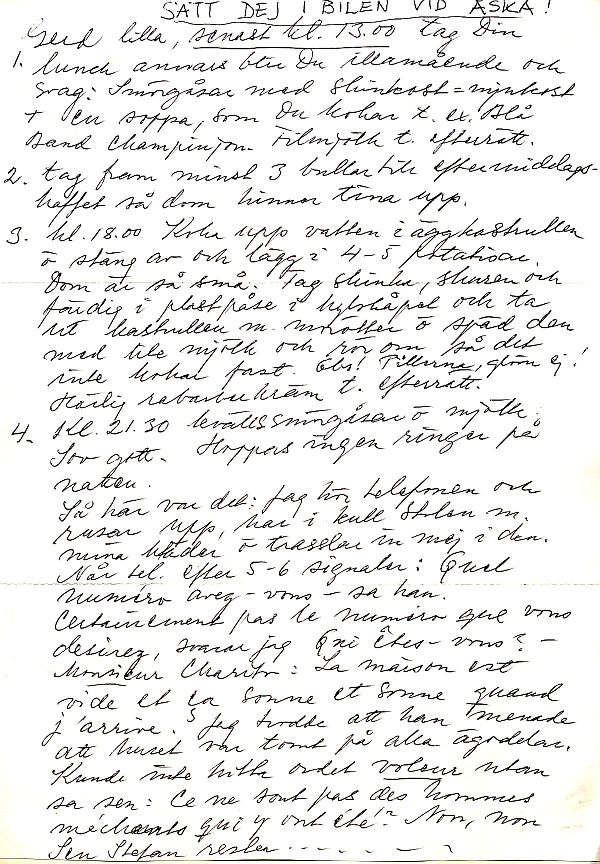 SÄTT DEJ I BILEN VID ÅSKA!
Gerd lilla, senast kl. 13.00 tag Din
1. lunch annars blir Du illamående och
svag: Smörgåsar med skinkost = mjukost
+ en soppa, som Du kokar t. ex. Blå
Band Champinjon. Filmjölk t. efterrätt.
2. tag fram minst 3 bullar till eftermiddags-
kaffet så dom hinner tina upp.
3. kl. 18.00 Koka upp vatten i äggkastrullen
ö stäng av och lägg i 4-5 potatisar.
Dom är så små. Tag skinka, skuren och
färdig i plastpåse i kylskåpet och ta
ut kastrullen m. morötter ö späd den
med lite mjölk och rör om så det
inte kokar fast. Obs! Pillerna, glöm ej!
Härlig rabarberkräm t. efterrätt.
4. Kl. 21.30 kvällssmörgåsar ö mjölk.
Sov gott. Hoppas ingen ringer på
natten.
Så här var det: Jag hör telefonen och
rusar upp, har i kull stolen m.
mina kläder ö trasslar in mej i den.
Når tel. efter 5-6 signaler: Quel
numéro avez-vous - sa han.
Certainement pas le numéro que vous
desirez, svarar jag Qui êtes-vous? -
Monsieur : La maison est
vide et ça sonne et sonne quand
j'arrive. Jag trodde att han menade
att huset var tomt på alla ägodelar.
Kunde inte hitta ordet voleur utan
sa sen: Ce ne sont pas des hommes
méchants qui y ont été? Non, non
Sen Stefan resten - - - - - -